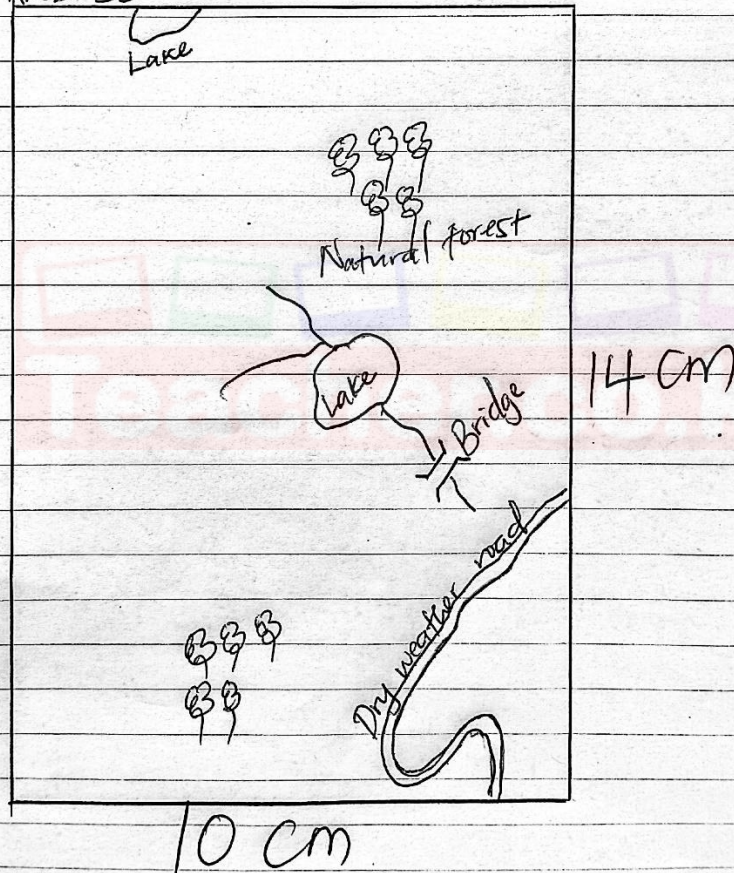 Lake
Natural forest
Lake
Bridge
14 cm
Dry weather road
10 cm